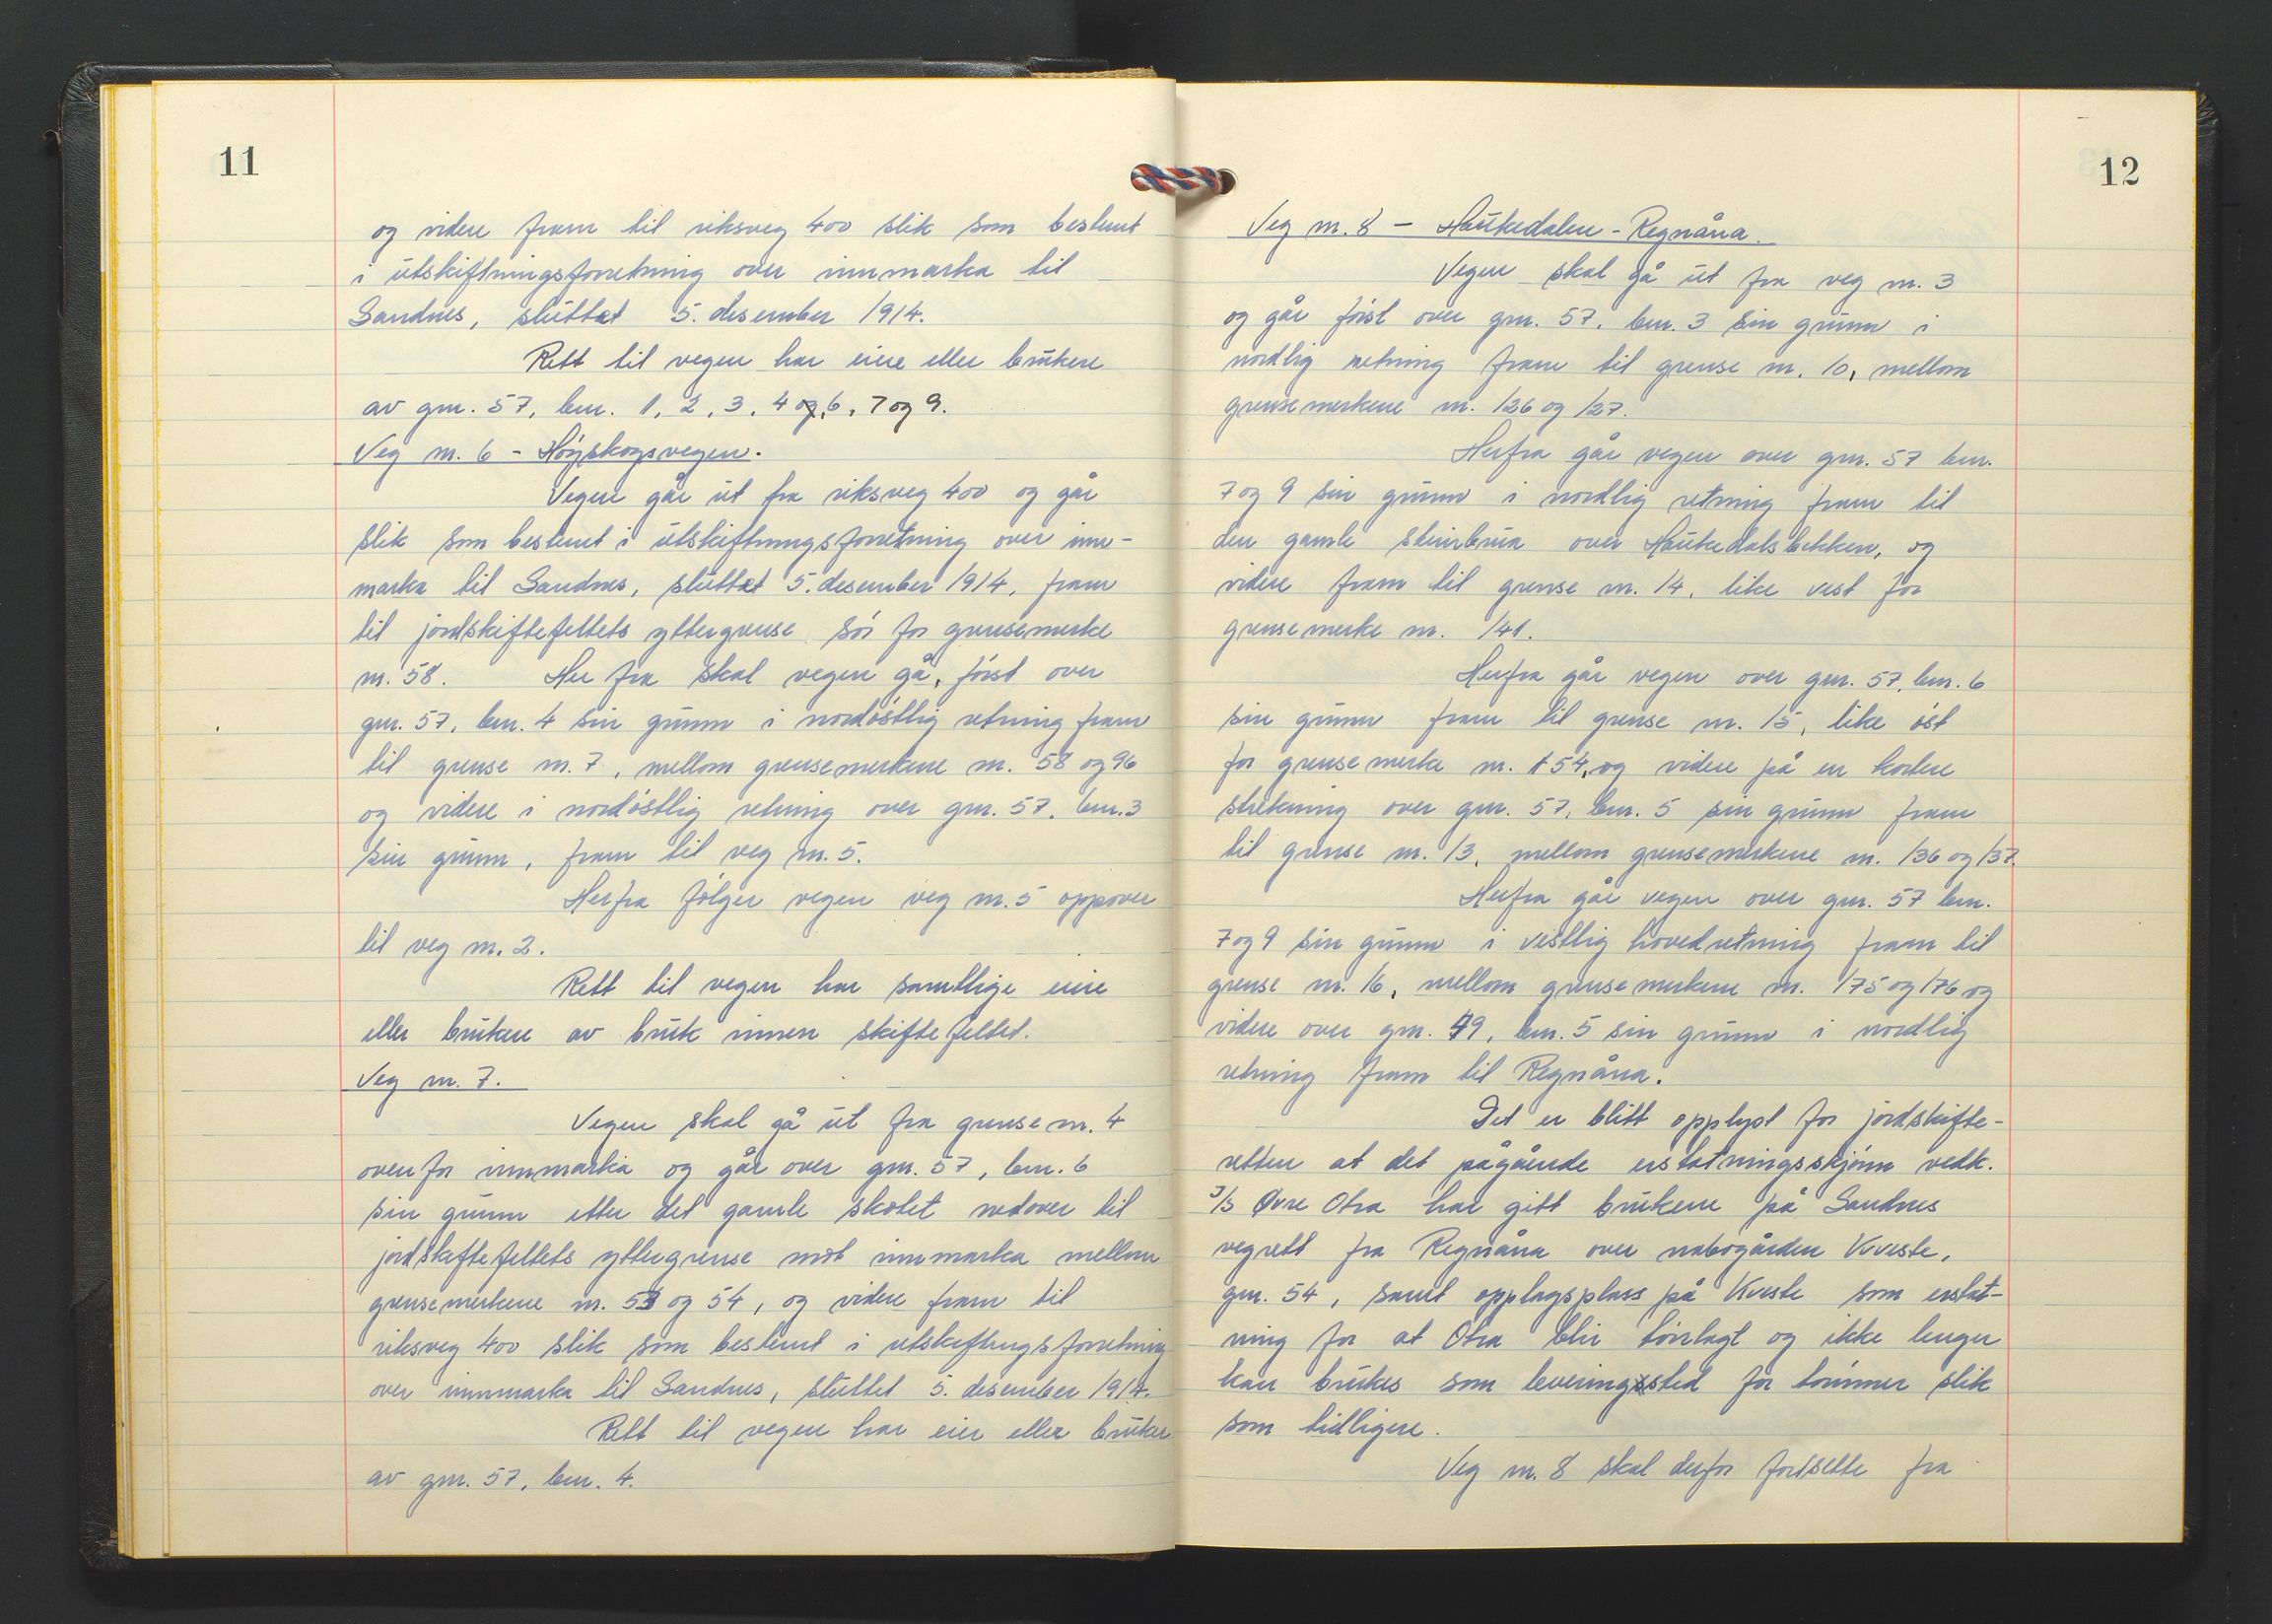 11
og videre fram til riksveg 400 slik som bestemt
i utskiftningsforretning over innmarka til
Sandnes, sluttet 5. desember 1914.
Rett til vegen har eiere eller brukere
av gnr. 57, bnr. 1, 2, 3, 4 og, 6, 7 og 9.
Veg nr. 6 - Høyskogsvegen.
Vegen går ut fra riksveg 400 og går
slik som bestemt i utskiftningsforretning over inn-
marka til Sandnes, sluttet 5. desember 1914, fram
til jordskiftefeltets yttergrense sør for grensemerke
nr. 58. Her fra skal vegen gå, først over
gnr. 57, bnr. 4 sin grunn i nordøstlig retning fram
til grense nr. 7, mellom grensemerkene nr. 58 og 96
og videre i nordøstlig retning over gnr. 57, bnr. 3
sin grunn, fram til veg nr. 5.
Herfra følger vegen veg nr. 5 oppover
til veg nr. 2.
Rett til vegen har samtlige eiere
eller brukere av bruk innen skiftefeltet.
Veg nr. 7.
Vegen skal gå ut fra grense nr. 4
ovenfor innmarka og går over gnr. 57, bnr. 6
sin grunn etter det gamle skotet nedover til
jordskiftefeltets yttergrense mot innmarka mellom
grensemerkene nr. 53 og 54, og videre fram til
riksveg 400 slik som bestemt i utskiftningsforretning
over innmarka til Sandnes, sluttet 5. desember 1914.
Rett til vegen har eier eller bruker
av gnr. 57, bnr. 4.
12
Veg nr. 8 - Haukedalen - Regnåna.
Vegen skal gå ut fra veg nr. 3
og går først over gnr. 57, bnr. 3 sin grunn i
nordlig retning fram til grense nr. 10, mellom
grensemerkene nr. 126 og 127.
Herfra går vegen over gnr. 57 bnr.
7 og 9 sin grunn i nordlig retning fram til
den gamle steinbrua over Haukedalsbekken, og
videre fram til grense nr. 14, like vest for
grensemerke nr. 141.
Herfra går vegen over gnr. 57, bnr. 6
sin grunn fram til grense nr. 15, like øst
for grensemerke nr. 154, og videre på en kortere
strekning over gnr. 57, bnr. 5 sin grunn fram
til grense nr. 13, mellom grensemerkene nr. 136 og 137.
Herfra går vegen over gnr. 57 bnr.
7 og 9 sin grunn i vestlig hovedretning fram til
grense nr. 16, mellom grensemerkene nr. 175 og 176 og
videre over gnr. 49, bnr. 5 sin grunn i nordlig
retning fram til Regnåna.
Det er blitt opplyst for jordskifte-
retten at det pågående erstatningsskjønn vedk.
I/S Øvre Otra har gitt brukene på Sandnes
vegrett fra Regnåna over nabogården Kveste,
gnr. 54, samt opplagsplass på Kveste som erstat-
ning for at Otra blir tørrlagt og ikke lenger
kan brukes som leveringssted for tømmer slik
som tidligere.
Veg nr. 8 skal derfor fortsette fra